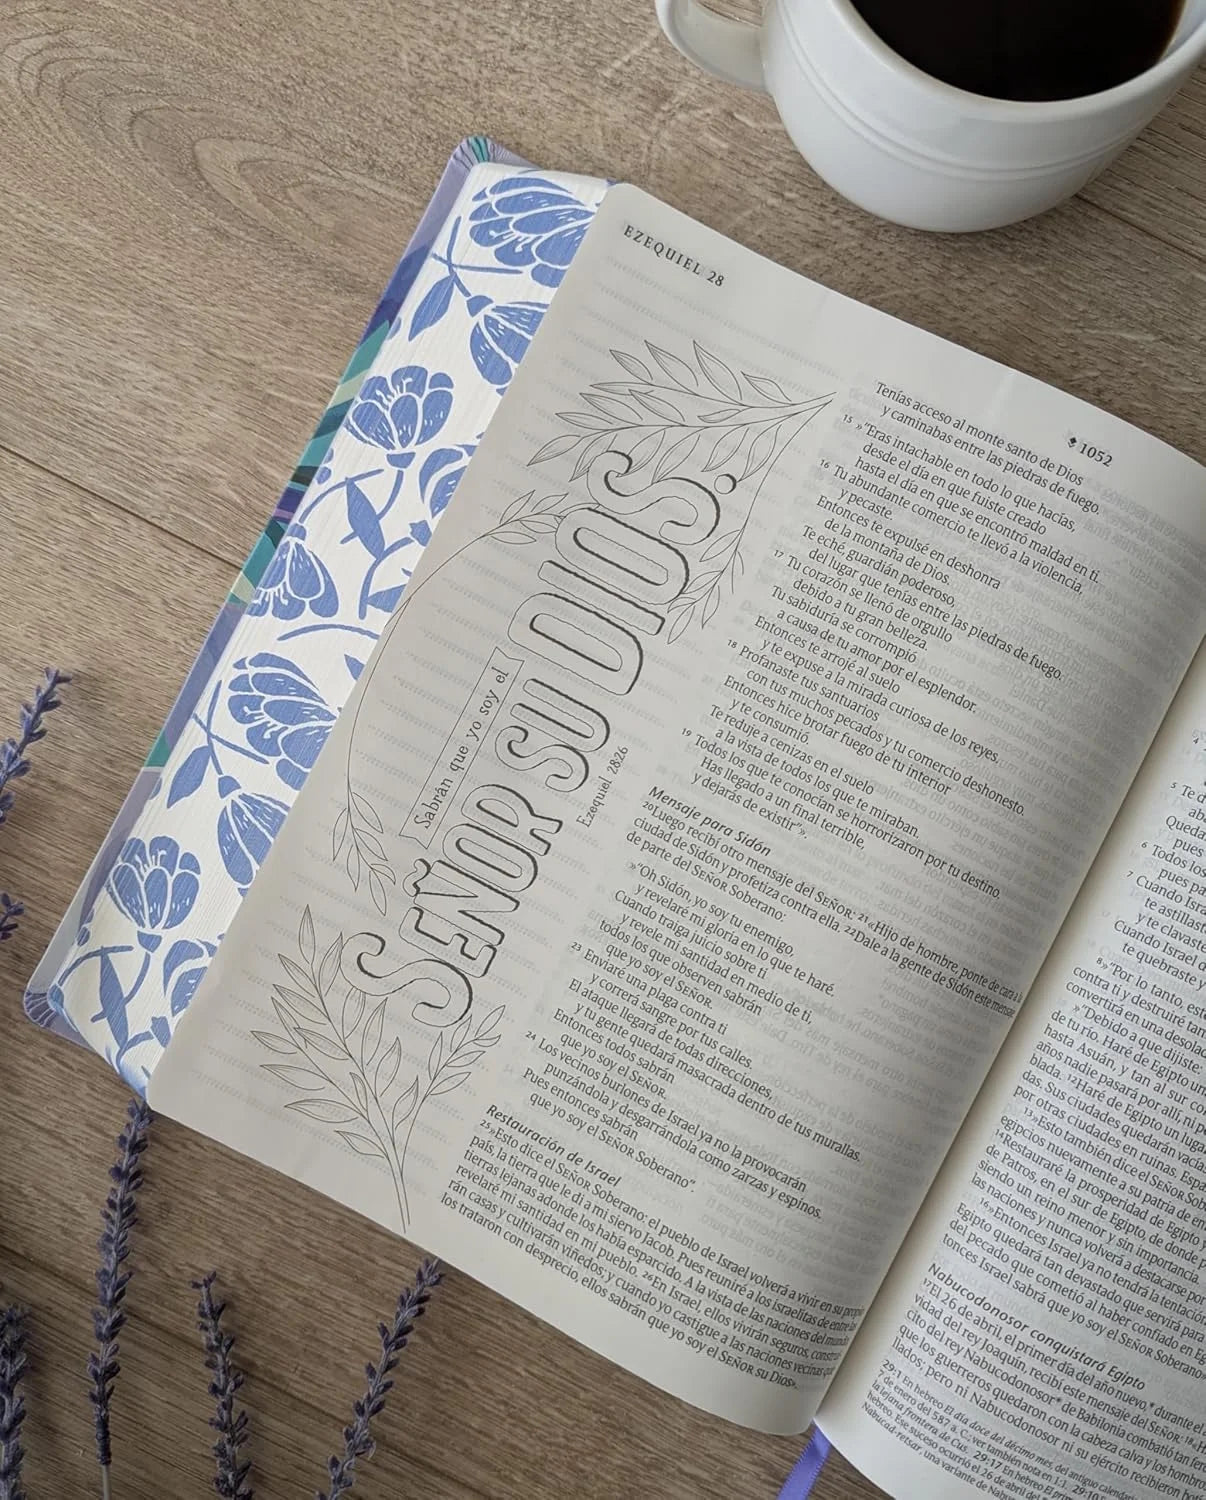 EZEQUIEL 28
1052
Sabrán que yo soy el
SEÑOR SU DIOS.
Ezequiel 28:26
Tenías acceso al monte santo de Dios
y caminabas entre las piedras de fuego.
15 »"Eras intachable en todo lo que hacías,
desde el día en que fuiste creado
hasta el día en que se encontró maldad en ti.
16 Tu abundante comercio te llevó a la violencia,
y pecaste.
Entonces te expulsé en deshonra
de la montaña de Dios.
Te eché guardián poderoso,
del lugar que tenías entre las piedras de fuego.
17 Tu corazón se llenó de orgullo
debido a tu gran belleza.
Tu sabiduría se corrompió
a causa de tu amor por el esplendor.
Entonces te arrojé al suelo
y te expuse a la mirada curiosa de los reyes.
18 Profanaste tus santuarios
con tus muchos pecados y tu comercio deshonesto.
Entonces hice brotar fuego de tu interior
y te consumió.
Te reduje a cenizas en el suelo
a la vista de todos los que te miraban.
19 Todos los que te conocían se horrorizaron por tu destino.
Has llegado a un final terrible,
y dejarás de existir"».
Mensaje para Sidón
20 Luego recibí otro mensaje del SEÑOR: 21 «Hijo de hombre, ponte de cara a la
ciudad de Sidón y profetiza contra ella. 22 Dale a la gente de Sidón este mensaje
de parte del SEÑOR Soberano:
»"Oh Sidón, yo soy tu enemigo,
y revelaré mi gloria en lo que te haré.
Cuando traiga juicio sobre ti
y revele mi santidad en medio de ti,
todos los que observen sabrán
que yo soy el SEÑOR.
23 Enviaré una plaga contra ti
y correrá sangre por tus calles.
El ataque llegará de todas direcciones,
y tu gente quedará masacrada dentro de tus murallas.
Entonces todos sabrán
que yo soy el SEÑOR.
24 Los vecinos burlones de Israel ya no la provocarán
punzándola y desgarrándola como zarzas y espinos.
Pues entonces sabrán
que yo soy el SEÑOR Soberano".
Restauración de Israel
25 »Esto dice el SEÑOR Soberano: el pueblo de Israel volverá a vivir en su propio
país, la tierra que le di a mi siervo Jacob. Pues reuniré a los israelitas de entre las
tierras lejanas adonde los había esparcido. A la vista de las naciones del mundo
revelaré mi santidad en mi pueblo. 26 En Israel, ellos vivirán seguros, construi-
rán casas y cultivarán viñedos; y cuando yo castigue a las naciones vecinas que
los trataron con desprecio, ellos sabrán que yo soy el SEÑOR su Dios».
4
5 Te d
Queda
pues
6 Todos los
pues pa
7 Cuando Isra
te astillast
y te clavaste
Cuando Israel
te quebraste y
8 »"Por lo tanto, est
contra ti y destruiré tan
convertirá en una desola
»"Debido a que dijiste:
de tu río. Haré de Egipto un
hasta Asuán, y tan al sur co
años nadie pasará por allí, ni
blada. 12 Haré de Egipto un luga
das. Sus ciudades quedarán vacía
por otras ciudades en ruinas. Espa
13 »Esto también dice el SEÑOR Sob
egipcios nuevamente a su patria de en
14 Restauraré la prosperidad de Egipto y
de Patros, en el sur de Egipto, de donde
siendo un reino menor y sin importancia.
las naciones y nunca volverá a destacarse por
16 »Entonces Israel ya no tendrá la tentación
Egipto quedará tan devastado que servirá para
del pecado que cometió al haber confiado en Eg
tonces Israel sabrá que yo soy el SEÑOR Soberano»
Nabucodonosor conquistará Egipto
17 El 26 de abril, el primer día del año nuevo,* durante el
vidad del rey Joaquín, recibí este mensaje del SEÑOR: 18 «H
cito del rey Nabucodonosor* de Babilonia combatió tan fer
que los guerreros quedaron con la cabeza calva y los hombros
llados; pero ni Nabucodonosor ni su ejército recibieron
29:1 En hebreo El día doce del décimo mes, del antiguo calendari
7 de enero del 587 a. C.; ver también nota en 1:1. 29:10
la lejana frontera de Cus. 29:17 En hebreo El prim
hebreo. Ese suceso ocurrió el 26 de abril del
Nabucad-retsar, una variante de Nabu